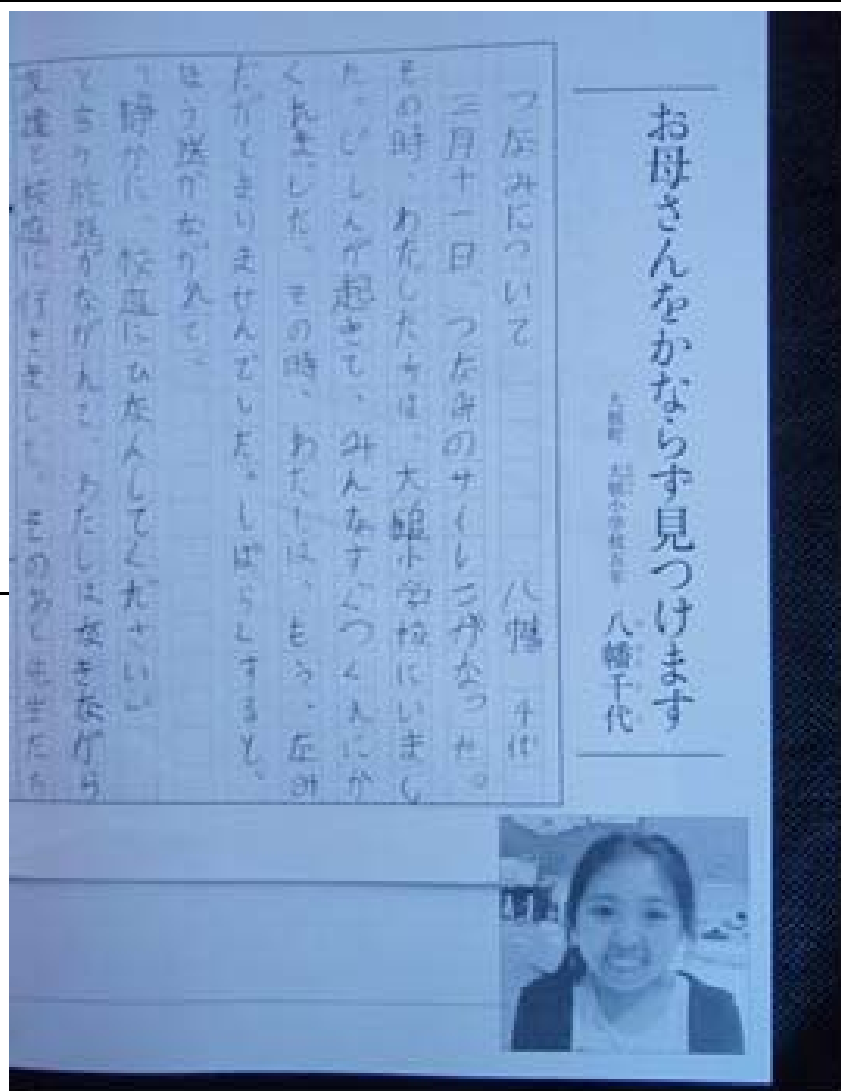 お母さんをかならず見つけます
大槌町 大槌小学校五年 八幡千代
つなみについて
八幡 千代
三月十一日、つなみのサイレンがなった。
その時、わたしたちは、大槌小学校にいまし
た。じしんが起きて、みんなすぐつくえにか
くれました。その時、わたしは、もう、なみ
だがとまりませんでした。しばらくすると、
ほう送がながれて、
「静かに、校庭にひなんしてください」
と言う放送がながれて、わたしは泣きながら
友達と校庭に行きました。そのあと先生たち